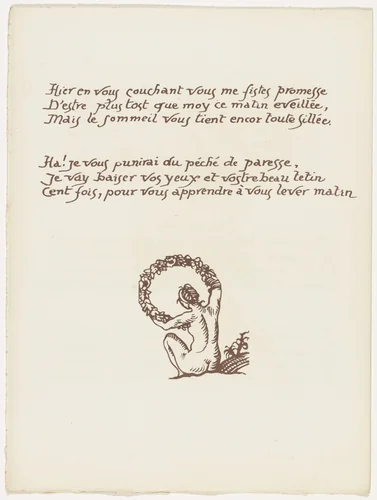 Hier en vous couchant vous me fistes promesse
D'estre plus tost que moy ce matin eveillée,
Mais le sommeil vous tient encor toute sillée.
Ha! je vous punirai du péché de paresse,
Je vay baiser vos yeux et vostre beau tetin
Cent fois, pour vous apprendre à vous lever matin